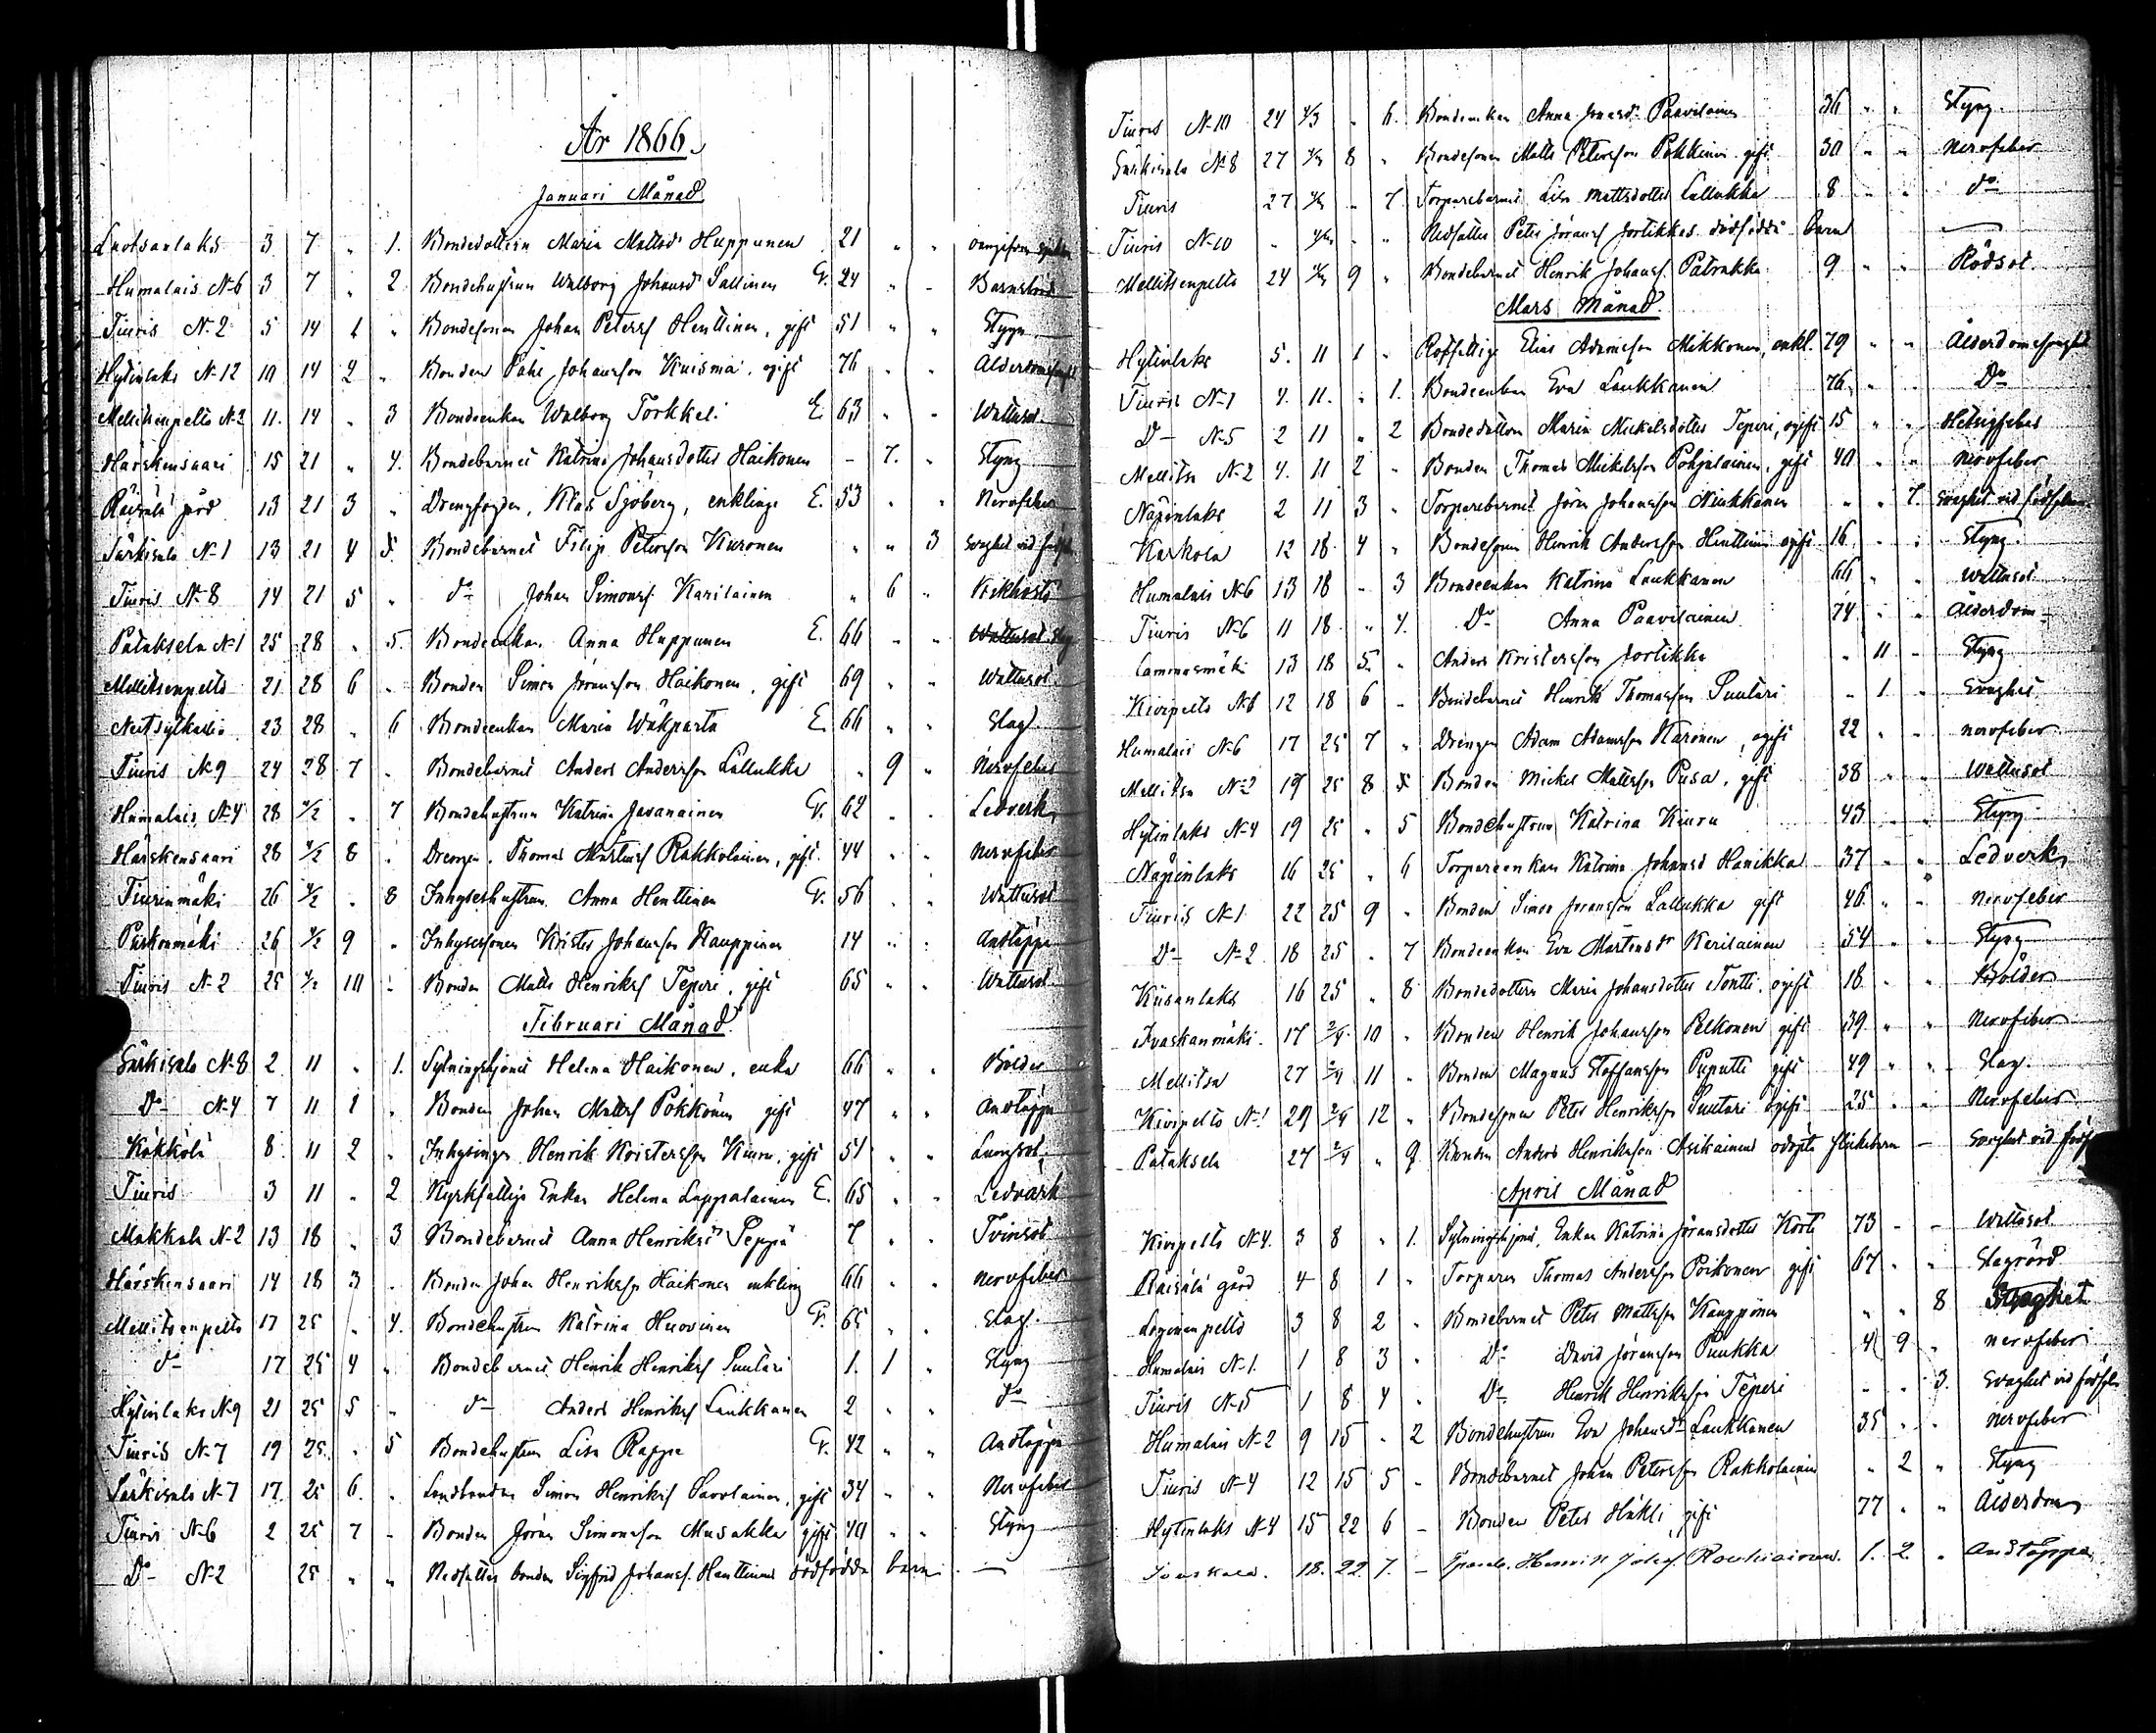 År 1866.
Januari Månad
3 7 " 1. Bondedottern Maria Mattsdr Huppunen 21 " "
Humalais N-6 3 7 " 2 Bondehustrun Walborg Johansdr Sallinen G. 24 " " Barnsbörd
Tiuris N-2 5 14 1 " Bondesonen Johan Petersf Henttinen, gift 51 " " Styng
Hytinlaks N-12 10 14 2 " Bonden Johansson Kuisma, gift 76 " "
Mellitsenpelto N-2 11. 14 " 3 Bondeenkan Walborg Torkkeli E. 63 " " Wattusot.
Härskensaari 15 21 " 4. Bondebarnet Katrina Johansdotter Haikonen - 7. " Styng
Räisälä gård 13 21 3 " Drengfogden, Klas Sjöberg, enkling E. 53 " " Nervfeber
Särkisalo N-1 13 21 4 5. Bondebarnet Filip Petersson Kuronen " " 3 Svaghet vid
Tiuris N-8 14 21 5 " do Johan Simonsf Karilainen " 6 " Kikhosta
Pataksela N-1 25 28 " 5. Bondeenkan Anna Huppunen E. 66 " "
Mellitsenpelto 21 28 6 " Bonden Simon Haikonen, gift 69 " " Wattusot.
23 28 " 6 Bondeenkan Maria Wäkiparta E. 66 " " Slag.
Tiuris N-9 24 28 7 " Bondebarnet Anders Andersson Lallukka " 9 " Nervfeber
Humalais N-4 28 4/2 " 7 Bondehustrun Katrina Javanainen G. 62 " " Ledverk
Härskensaari 28 4/2 8 " Drengen Thomas Rakkolainen, gift. 44 " " Nervfeber
Tiurinmäki 26 4/2 " 8 Inhyseshustrun Anna Henttinen G. 56 " " Wattusot
26 4/2 9 " Inhysessonen Krister Johansson Kauppinen 14 " " Andtäppa
Tiuris N-2 25 4/2 10 " Bonden Matts Henriksf Teperi, gift 65 " " Wattusot.
Februari Månad.
Särkisalo N-8 2 11 " 1. Sytningshjonet Helena Haikonen, enka 66 " " Bölder
Do N-4 7 11 1 " Bonden Johan Mattsf Pokkinen gift 47 " " Andtäppa
Kökköli 8. 11 2 " Inhysingen Henrik Kristersson Kiuru, gift 54 " " Lungsot
Tiuris 3 11 " 2 Kyrkfattige Enkan Helena Lappalainen E. 65 " " Ledvärk
Makkola N-2 13 18 " 3 Bondebarnet Anna Henriksdr Seppä 7 " " Tvinsot
Härskensaari 14 18 3 " Bonden Johan Henriksson Haikonen enkling 66 " " Nervfeber
Mellitsenpelto 17 25 " 4. Bondehustrun Katrina Huovinen G. 65 " " Slag.
do 17 25 4 " Bondebarnet Henrik Henriksf Suutari 1. 1 " Styng
Hytinlaks N-9 21 25 5 " do Anders Henriksf Laukkanen 2 " " do
Tiuris N-7 19 25. " 5 Bondehustrun Lisa Rappe G. 42 " " Andtäppa
Särkisalo N-7 17. 25 6. " Landbonden Simon Henriksf Savolainen, gift 34 " " Nervfeber
Tiuris N-6 2 25 7 " Bonden Jöran Simonsson Musakka gift 40 " " Styng
Do N-2 25 " " Nedsatter bonden Sigfrid Johansf. Henttinens dödfödda barn. —
Tiuris N-10 24 4/3 " 6. Bondeenkan Anna Jönsdr Paavilainen 36 " " Styng.
Särkisalo N-8 27 4/3 8 " Bondesonen Matts Petersson Pokkinen gift. 30 " " Nervfeber
Tiuris 27 4/3 " 7. Torparebarnet Lisa Mattsdotter Lallukka 8 " " do
Tiuris N-10 " 4/3 " " Nedsatter Peter Jöransf Jortikkas dödfödda barn —
Mellitsenpelto 24 4/3 9 " Bondebarnet Henrik Johansf. Patrakka 9 " " Rödsot.
Mars Månad.
Hytinlaks 5. 11 1 " Rotfattige Elias Adamsson Mikkonen, enkl. 79 " " Ålderdomssvaghet
Tiuris N-1 4. 11. " 1. Bondeenkan Eva Laukkanen 76 " " Do
Do N-5 2 11 " 2 Bondedottern Maria Mickelsdotter Teperi, ogift 15 " " Hetsigfeber
Mellitsa N-2 4. 11 2 " Bonden Thomas Mickelsson Pohjolainen, gift 40 " " Nervfeber
Näpinlaks 2 11 3 " Torparebarnet Jöran Johansson Niukkanen " " 7. Svaghet vid födseln
Karkola 12 18 4 " Bondesonen Henrik Andersson Henttinen ogift 16 " " Styng.
Humalais N-6 13 18 " 3 Bondeenkan Katrina Laukkanen 66 " " Wattusot
Tiuris N-6 11 18 " 4. Do Anna Paavilainen 74 " " Ålderdom
Lammasmäki 13 18 5. " Anders Kristersson Jortikka " 11 " Styng
Kivipelto N-8 12 18 6 " Bondebarnet Henrik Thomasson Suutari " 1. " Svaghet
Humalais N-6 17 25 7 " Drengen Adam Adamsson Karonen, ogift 22 " " nervfeber
Mellitsa N-2 19 25 8 5 Bonden Mickel Mattsson Pusa, gift 38 " " Wattusot
Hytinlaks N-4 19 25 " 5 Bondehustrun Katrina Kiuru 43 " " Styng
Näpinlaks 16 25 " 6 Torpareenkan Katrina Johansd Hanikka 37 " " Ledverk
Tiuris N-1 22 25 9 " Bonden Simon Jöransson Lallukka gift 46 " " Nervfeber
Do N-2 18 25 " 7 Bondeenkan Eva Mårtensdr Karilainen 54 " " Styng
16 25 " 8 Bondedottern Maria Johansdotter Tontti, ogift 18. " " Bölder
Ivaskanmäki. 17 2/4 10 " Bonden Henrik Johansson Pelkonen gift 39 " " Nervfeber
Mellitsa 27 2/4 11 " Bonden Magnus Staffansson Puputti gift 49 " " Slag.
Kivipelto N-1 29 2/4 12 " Bondesonen Peter Henriksson Suutari ogift 25 " " Nervfeber
Pataksela 27 2/4 " 9 Bonden Anders Henriksson Asikainens odöpta flickebarn — Svaghet vid
April Månad
Kivipelto N-4. 3 8 " 1. Sytningshjonet, Enkan Katrina Jöransdotter 73 - - Wattusot
Räisälä gård 4 8 1 " Torparen Thomas Andersson Poikonen gift 67 " " Slagrörd
3 8 2 " Bondebarnet Peter Mattsson Kauppinen " " 8 Svaghet
Humalais N-1. 1 8 3 " Do David Jöransson Puukka 4 9 " nervfeber
Tiuris N-5 1 8 4 " Do Henrik Henriksson Teperi " " 3. Svaghet vid födseln
Humalais N-2 9 15 " 2 Bondehustrun Eva Johansdr Laukkanen 35 " " Nervfeber
Tiuris N-4 12 15 5 - Bondebarnet Johan Petersson Rakkolainen " 2 " Styng
Hytinlaks N-4 15 22 6 - Bonden Peter Häkli, gift 77 " " Ålderdom
18. 22. 7. - Henrik Johsf. 1. 2. " Andtäppa